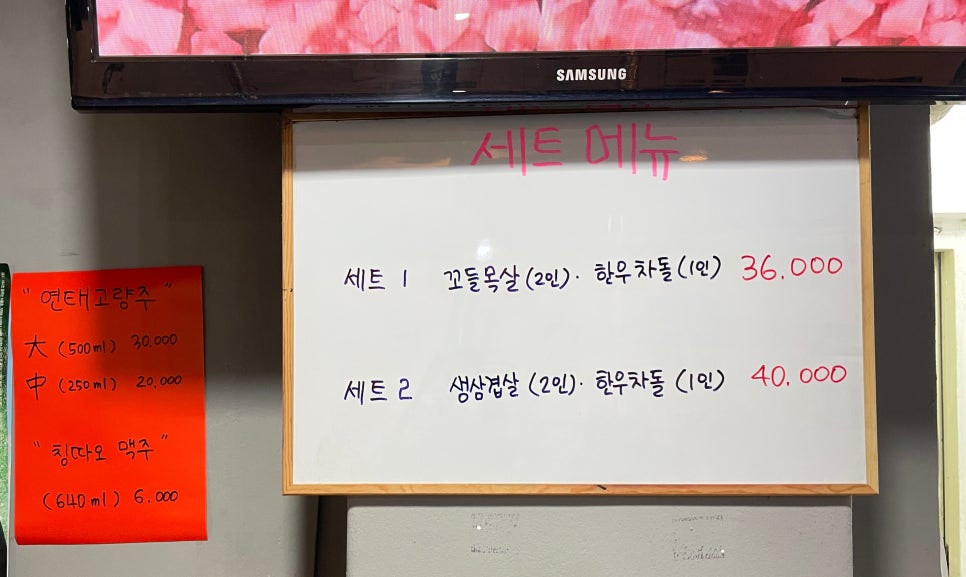 SAMSUNG
세트 메뉴
세트 1 꼬들목살 (2인)· 한우차돌 (1인) 36.000
세트 2 생삼겹살 (2인)· 한우차돌 (1인) 40.000
"연태고량주"
大 (500ml) 30.000
中 (250ml) 20.000
"칭따오 맥주"
(640ml) 6.000